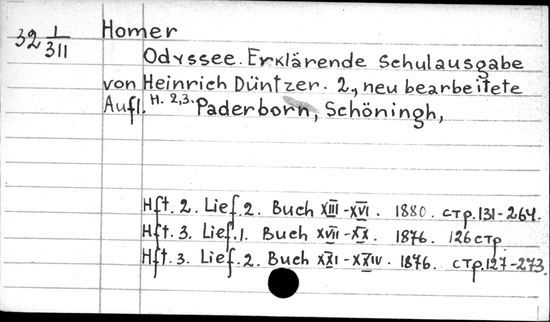 32 1/311
Homer
Odyssee. Erklärende Schulausgabe
von Heinrich Düntzer. 2, neu bearbeitete
Aufl. H. 2,3. Paderborn, Schöningh,
Hft. 2. Lief. 2. Buch XIII-XVI. 1880. стр. 131-264.
Hft. 3. Lief. 1. Buch XVII-XX. 1876. 126 стр.
Hft. 3. Lief. 2. Buch XXI-XXIV. 1876. стр. 127-273.